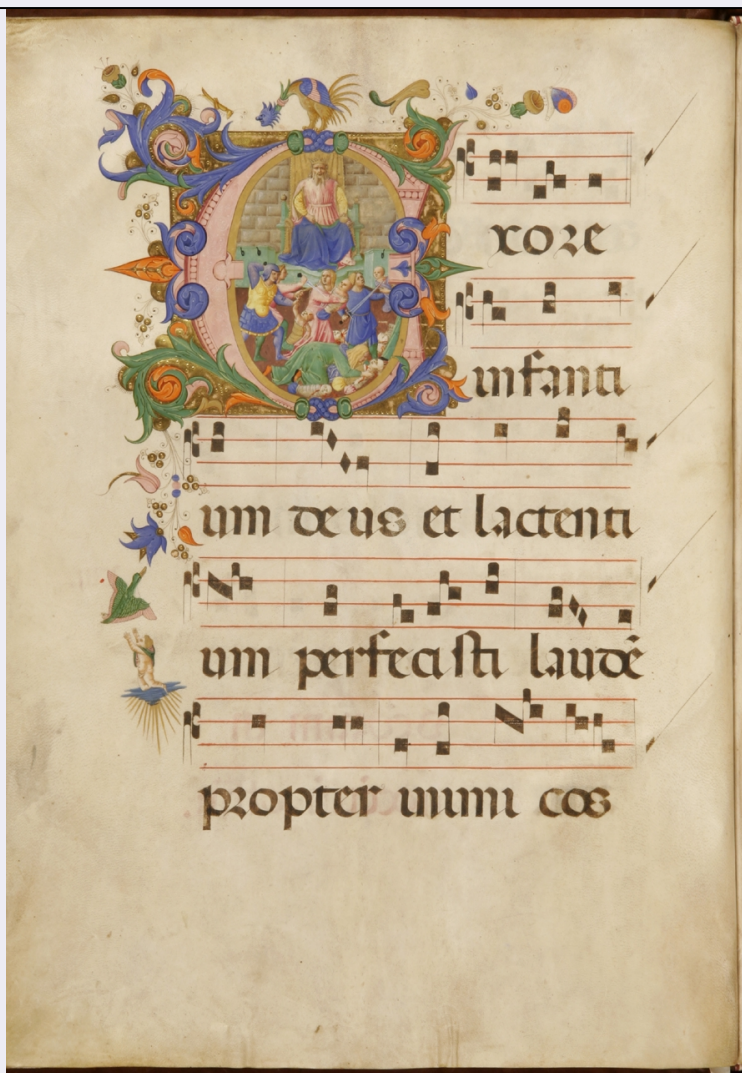 Exore
infanti
um deus et lactenti
um perfecisti laudē
propter inimicos